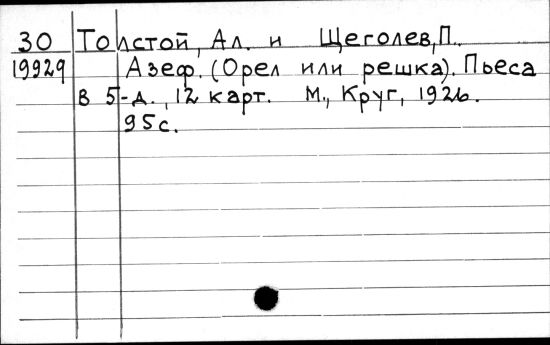 30 Толстой, Ал. и Щеголев, П.
19929 Азеф. (Орел или решка). Пьеса
в 5-д., 12 карт. М., Круг, 1926.
95с.